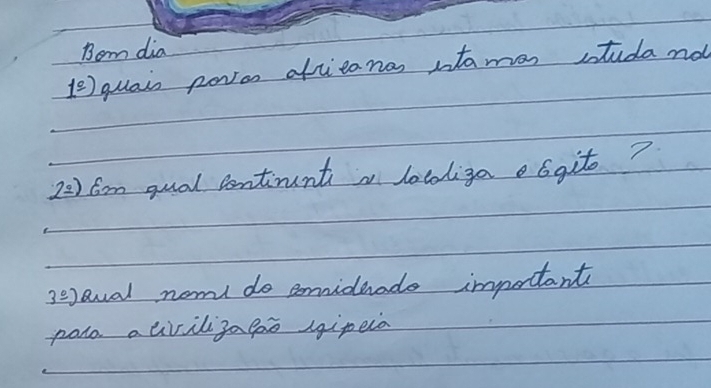 Bom dia
1º) quais povos africanos estamos estudando
2º) Em qual continente se localiza o Egito ?
3º) Qual nome do considerado importante
para a civilização egipcia